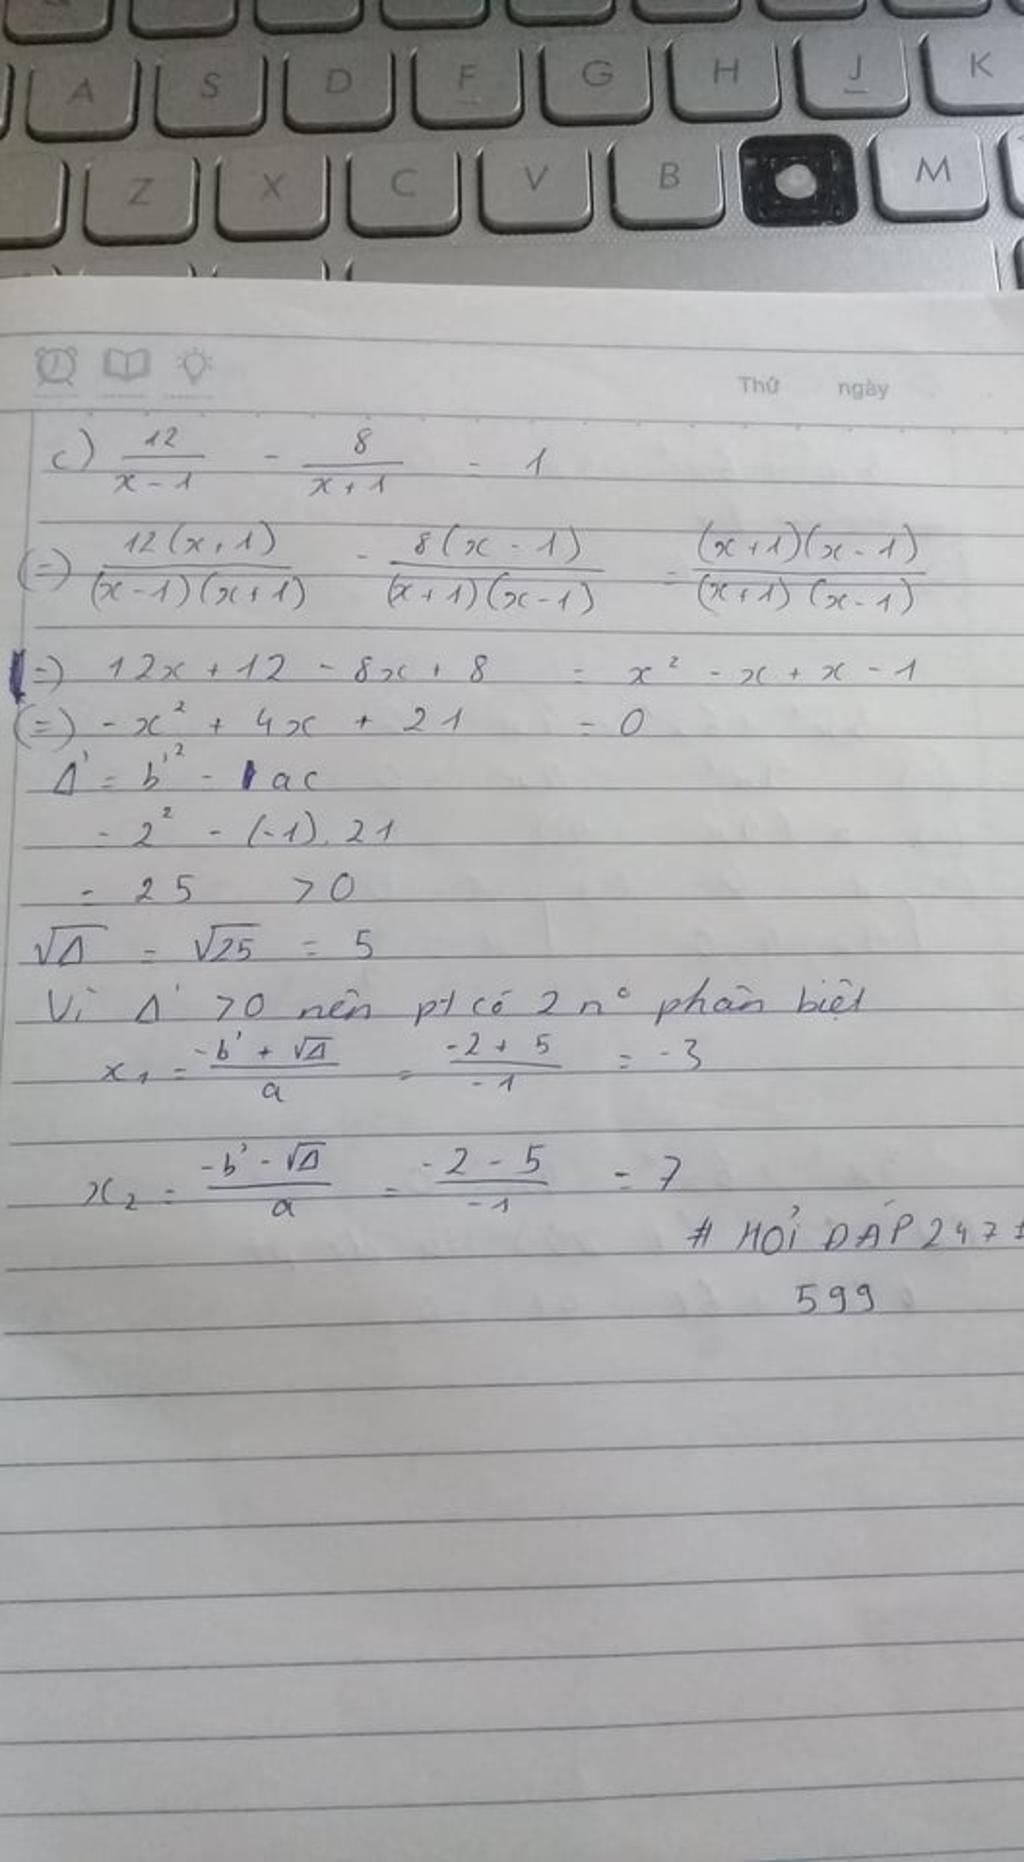 A S D F G H J K
Z X C V B M
Thứ ngày
c) 12/(x-1) - 8/(x+1) = 1
(=) 12(x+1)/((x-1)(x+1)) - 8(x-1)/((x+1)(x-1)) = (x+1)(x-1)/((x+1)(x-1))
=) 12x + 12 - 8x + 8 = x² - x + x - 1
(=) -x² + 4x + 21 = 0
Δ' = b'² - ac
= 2² - (-1).21
= 25 > 0
√Δ = √25 = 5
Vì Δ' > 0 nên pt có 2 n° phân biệt
x₁ = (-b' + √Δ)/a = (-2 + 5)/-1 = -3
x₂ = (-b' - √Δ)/a = (-2 - 5)/-1 = 7
# HỎI ĐÁP 247
599